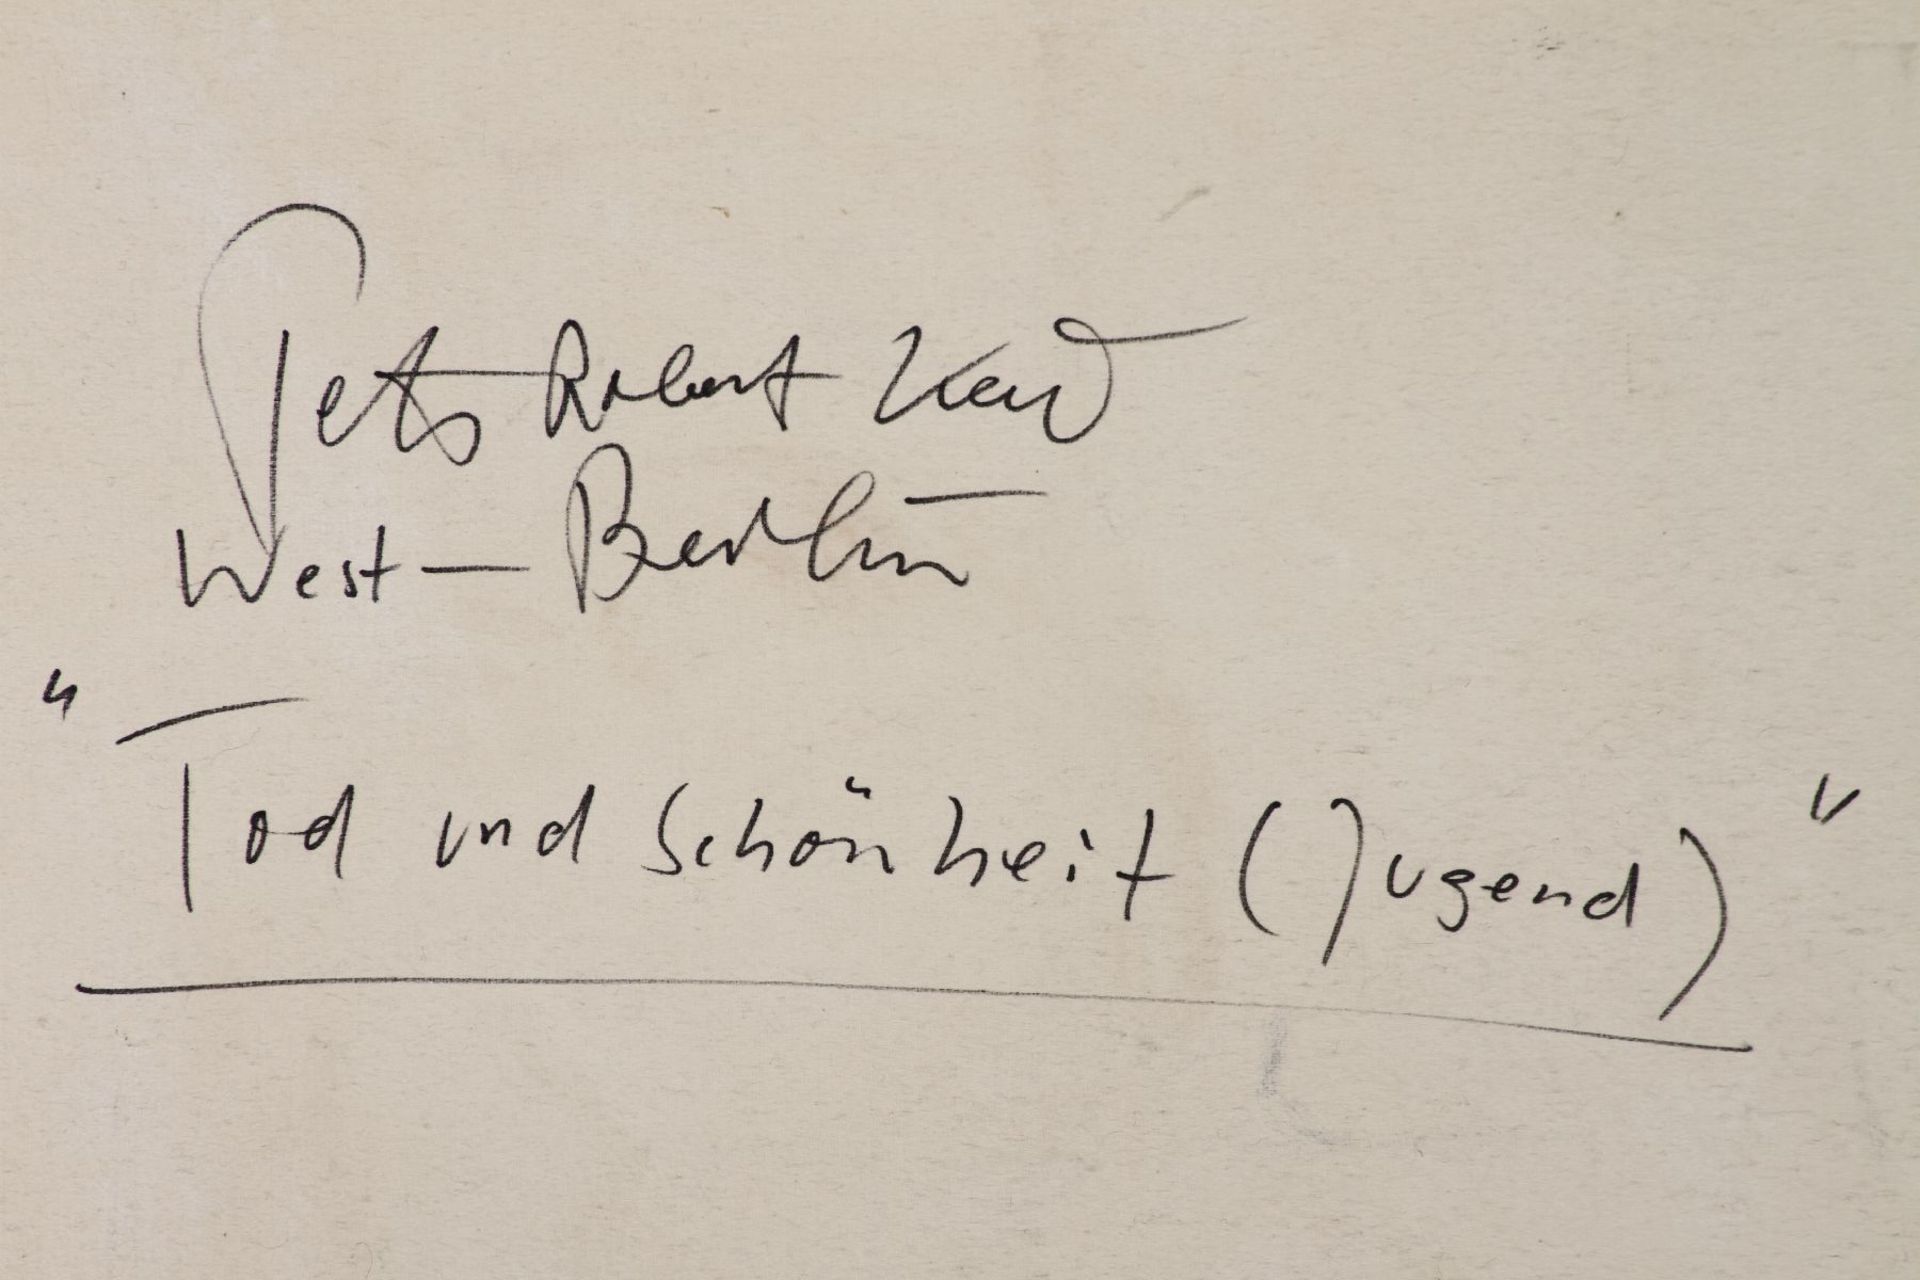 Peter Robert Keil
West-Berlin
"Tod und Schönheit (Jugend)"